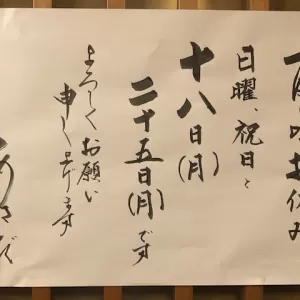 月のお休み
日曜、祝日と
十八日(月)
二十五日(月)です
よろしくお願い
申し上げます